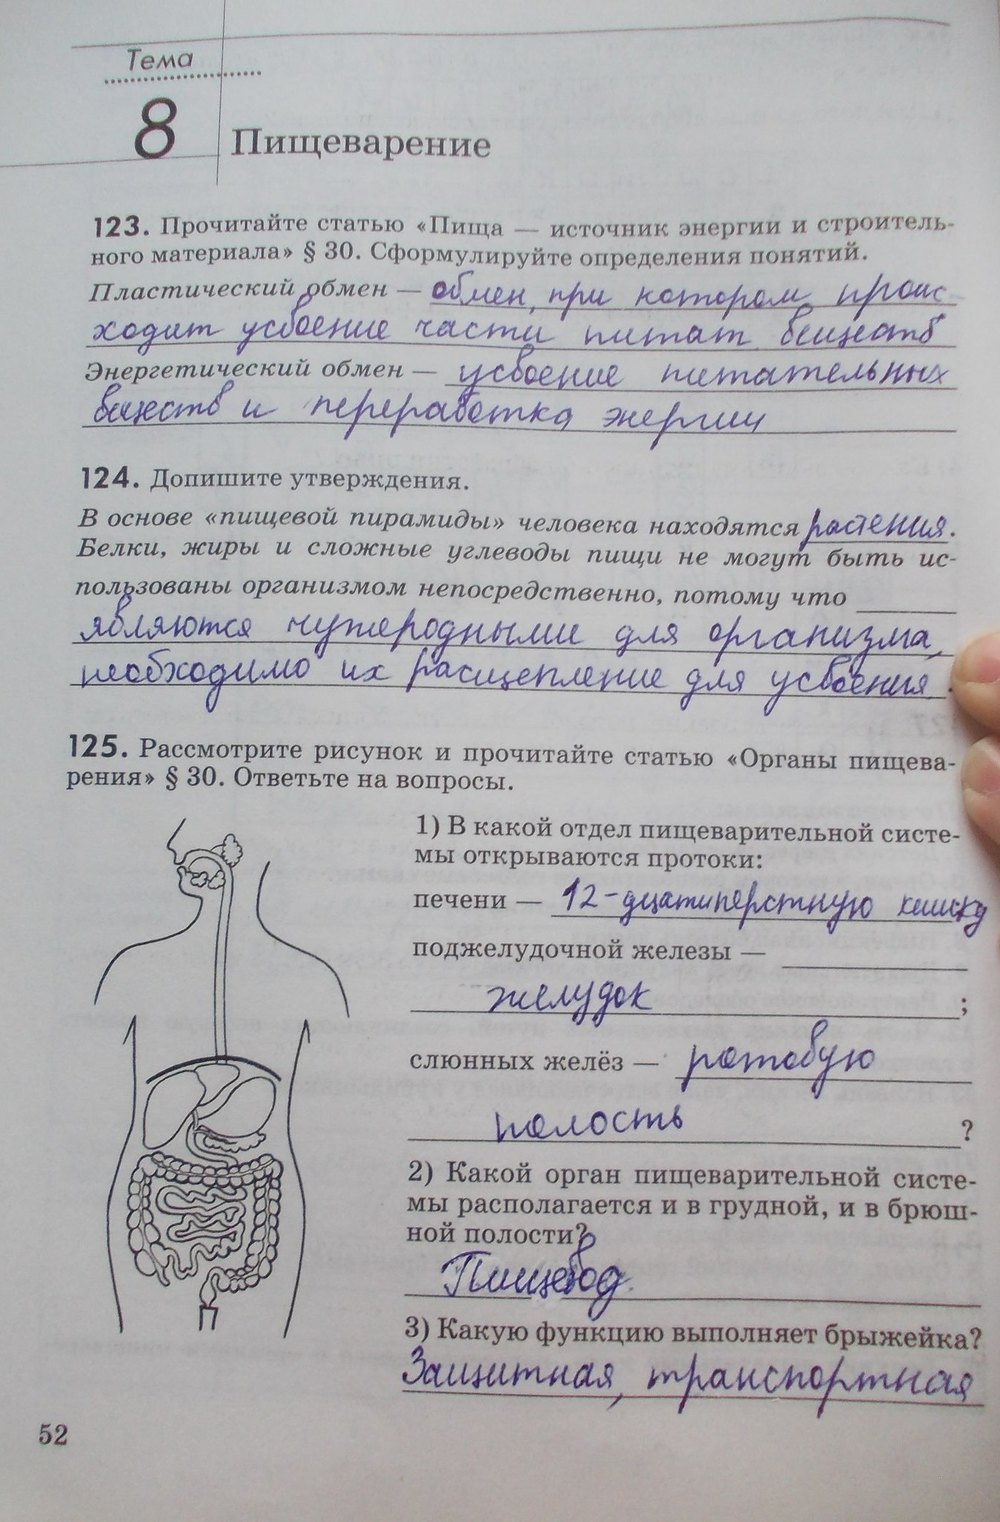 Тема
8 Пищеварение
123. Прочитайте статью «Пища — источник энергии и строитель-
ного материала» § 30. Сформулируйте определения понятий.
Пластический обмен — обмен, при котором проис
ходит усвоение части питат веществ
Энергетический обмен — усвоение питательных
веществ и переработка энергии
124. Допишите утверждения.
В основе «пищевой пирамиды» человека находятся растения.
Белки, жиры и сложные углеводы пищи не могут быть ис-
пользованы организмом непосредственно, потому что
являются чужеродными для организма,
необходимо их расщепление для усвоения.
125. Рассмотрите рисунок и прочитайте статью «Органы пищева-
рения» § 30. Ответьте на вопросы.
1) В какой отдел пищеварительной систе-
мы открываются протоки:
печени — 12-дцатиперстную кишку
поджелудочной железы —
желудок ;
слюнных желёз — ротовую
полость ?
2) Какой орган пищеварительной систе-
мы располагается и в грудной, и в брюш-
ной полости?
Пищевод
3) Какую функцию выполняет брыжейка?
Защитная, транспортная
52